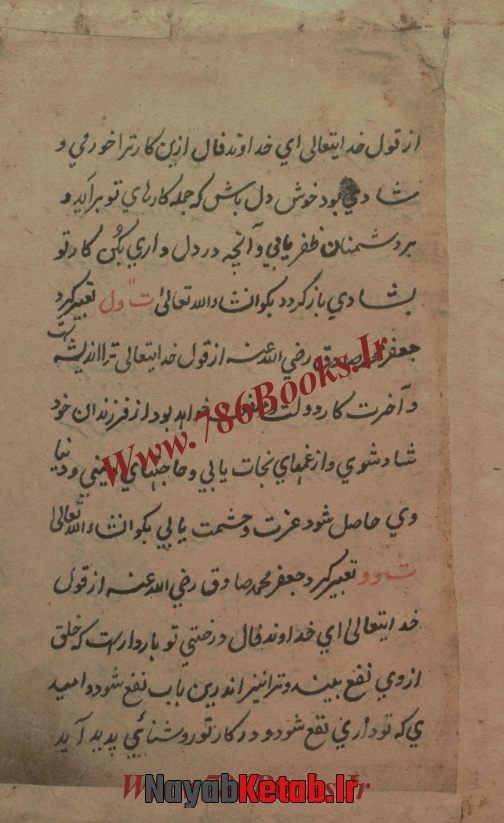 از قول خدایتعالی ای خداوند فال ازین کار ترا خورمی و
شادی بود خوش دل باش که جمله کارهای تو برآید و
بر دشمنان ظفر یابی و آنچه در دل داری بکن کار تو
بشادی باز گردد بگو انشاء الله تعالی ت و ل تعبیر کرد
جعفر محمد صادق رضی الله عنه از قول خدایتعالی ترا اندیشه است
و آخرت کار دولت خواهد بود از فرزندان خود
شاد شوی و از غمهای نجات یابی و حاجتهای دینی و دنیا
وی حاصل شود عزت و حشمت یابی بگو انشاء الله تعالی
ت و و تعبیر کرد جعفر محمد صادق رضی الله عنه از قول
خدایتعالی ای خداوند فال درختی تو باردار است که خلق
از وی نفع بیند و ترا نیز اندرین باب نفع شود و امید
ی که تو داری نفع شود و در کار تو روشنائی پدید آید
Www.786Books.Ir
NayabKetab.Ir